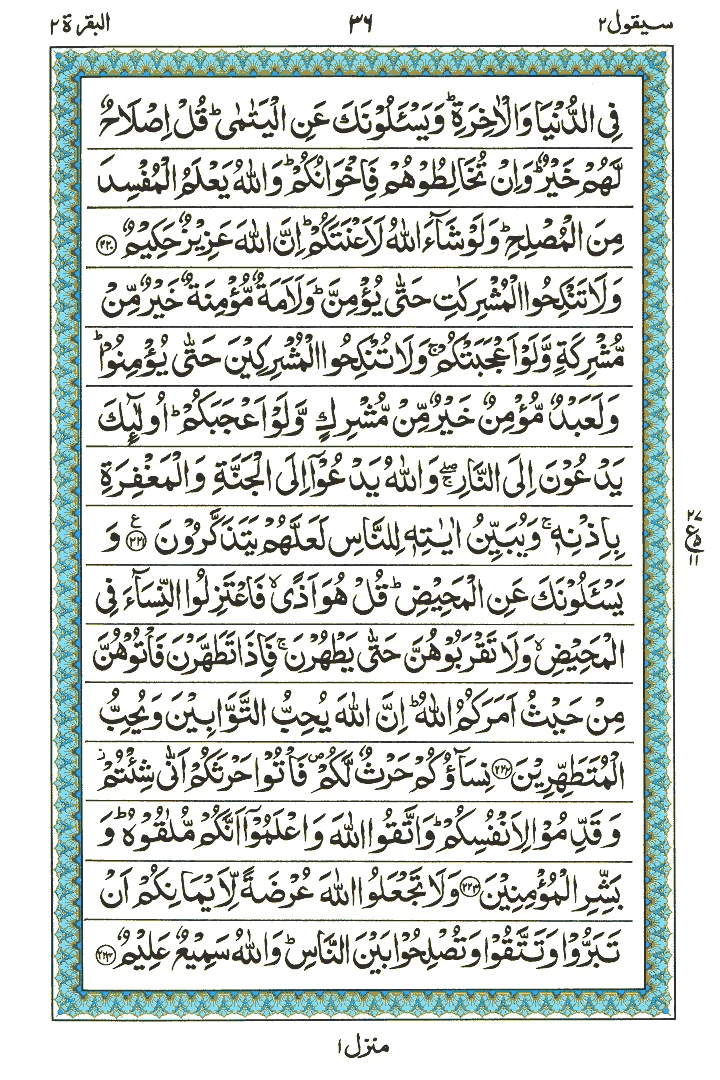 سيقول ٢ ٣٦ البقرة ٢
فِى الدُّنْيَا وَالْاٰخِرَةِ ؕ وَيَسْئَلُوْنَكَ عَنِ الْيَتٰمٰى ؕ قُلْ اِصْلَاحٌ
لَّهُمْ خَيْرٌ ؕ وَاِنْ تُخَالِطُوْهُمْ فَاِخْوَانُكُمْ ؕ وَاللّٰهُ يَعْلَمُ الْمُفْسِدَ
مِنَ الْمُصْلِحِ ؕ وَلَوْ شَآءَ اللّٰهُ لَاَعْنَتَكُمْ ؕ اِنَّ اللّٰهَ عَزِيْزٌ حَكِيْمٌ ﴿۲۲۰﴾
وَلَا تَنْكِحُوا الْمُشْرِكٰتِ حَتّٰى يُؤْمِنَّ ؕ وَلَاَمَةٌ مُّؤْمِنَةٌ خَيْرٌ مِّنْ
مُّشْرِكَةٍ وَّلَوْ اَعْجَبَتْكُمْ ۚ وَلَا تُنْكِحُوا الْمُشْرِكِيْنَ حَتّٰى يُؤْمِنُوْا ؕ
وَلَعَبْدٌ مُّؤْمِنٌ خَيْرٌ مِّنْ مُّشْرِكٍ وَّلَوْ اَعْجَبَكُمْ ؕ اُولٰٓئِكَ
يَدْعُوْنَ اِلَى النَّارِ ۖۚ وَاللّٰهُ يَدْعُوْٓا اِلَى الْجَنَّةِ وَالْمَغْفِرَةِ
بِاِذْنِهٖ ۚ وَيُبَيِّنُ اٰيٰتِهٖ لِلنَّاسِ لَعَلَّهُمْ يَتَذَكَّرُوْنَ ﴿۲۲۱﴾ ع وَ
۲۷ ع ۵ ۱۱
يَسْئَلُوْنَكَ عَنِ الْمَحِيْضِ ؕ قُلْ هُوَ اَذًى ۙ فَاعْتَزِلُوا النِّسَآءَ فِى
الْمَحِيْضِ ۙ وَلَا تَقْرَبُوْهُنَّ حَتّٰى يَطْهُرْنَ ۚ فَاِذَا تَطَهَّرْنَ فَاْتُوْهُنَّ
مِنْ حَيْثُ اَمَرَكُمُ اللّٰهُ ؕ اِنَّ اللّٰهَ يُحِبُّ التَّوَّابِيْنَ وَيُحِبُّ
الْمُتَطَهِّرِيْنَ ﴿۲۲۲﴾ نِسَآؤُكُمْ حَرْثٌ لَّكُمْ ۪ فَاْتُوْا حَرْثَكُمْ اَنّٰى شِئْتُمْ ز
وَقَدِّمُوْا لِاَنْفُسِكُمْ ؕ وَاتَّقُوا اللّٰهَ وَاعْلَمُوْٓا اَنَّكُمْ مُّلٰقُوْهُ ؕ وَ
بَشِّرِ الْمُؤْمِنِيْنَ ﴿۲۲۳﴾ وَلَا تَجْعَلُوا اللّٰهَ عُرْضَةً لِّاَيْمَانِكُمْ اَنْ
تَبَرُّوْا وَتَتَّقُوْا وَتُصْلِحُوْا بَيْنَ النَّاسِ ؕ وَاللّٰهُ سَمِيْعٌ عَلِيْمٌ ﴿۲۲۴﴾
منزل ١